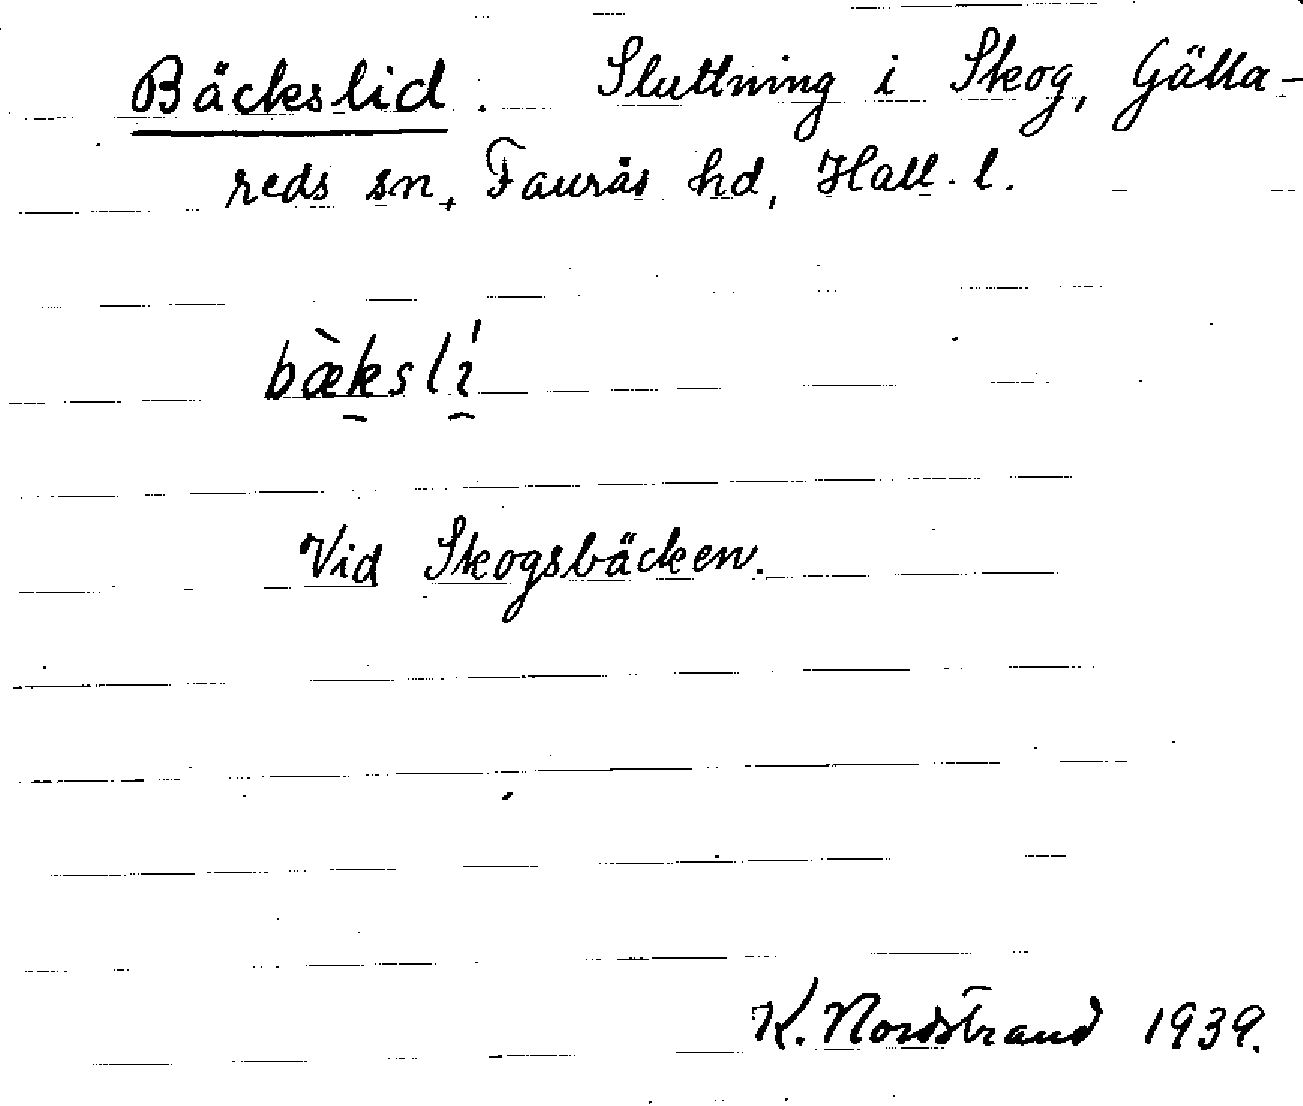 Bäckslid. Sluttning i Skog, Gälla-
reds sn, Faurås hd, Hall. l.
bæ̀kslí
Vid Skogsbäcken.
K. Nordstrand 1939.